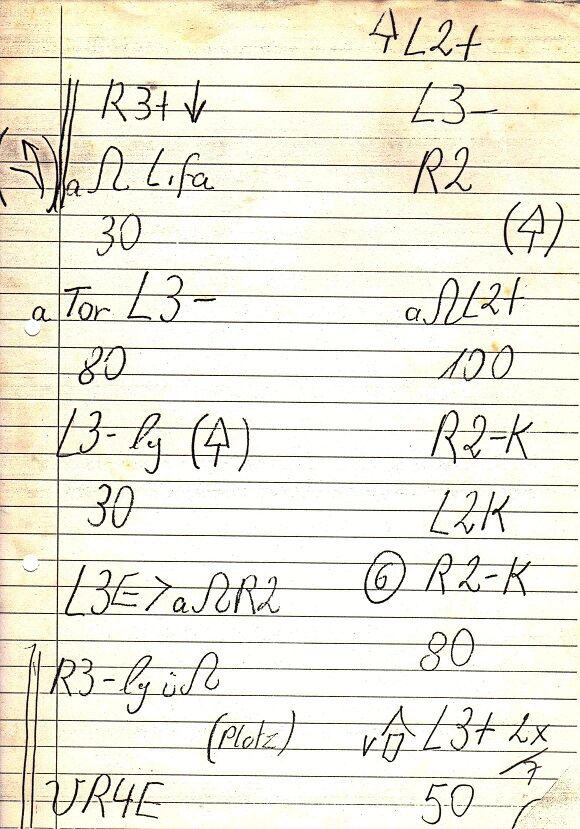 R3+ ↓
a Ω Lifa
30
a Tor L3-
80
L3- lg (⇧)
30
L3E > a Ω R2
R3- lg ü Ω
(Platz)
UR4E
L2+
L3-
R2
(⇧)
a Ω L2+
100
R2-K
L2K
⑥ R2-K
80
v ⇧ L3+ 2x
50